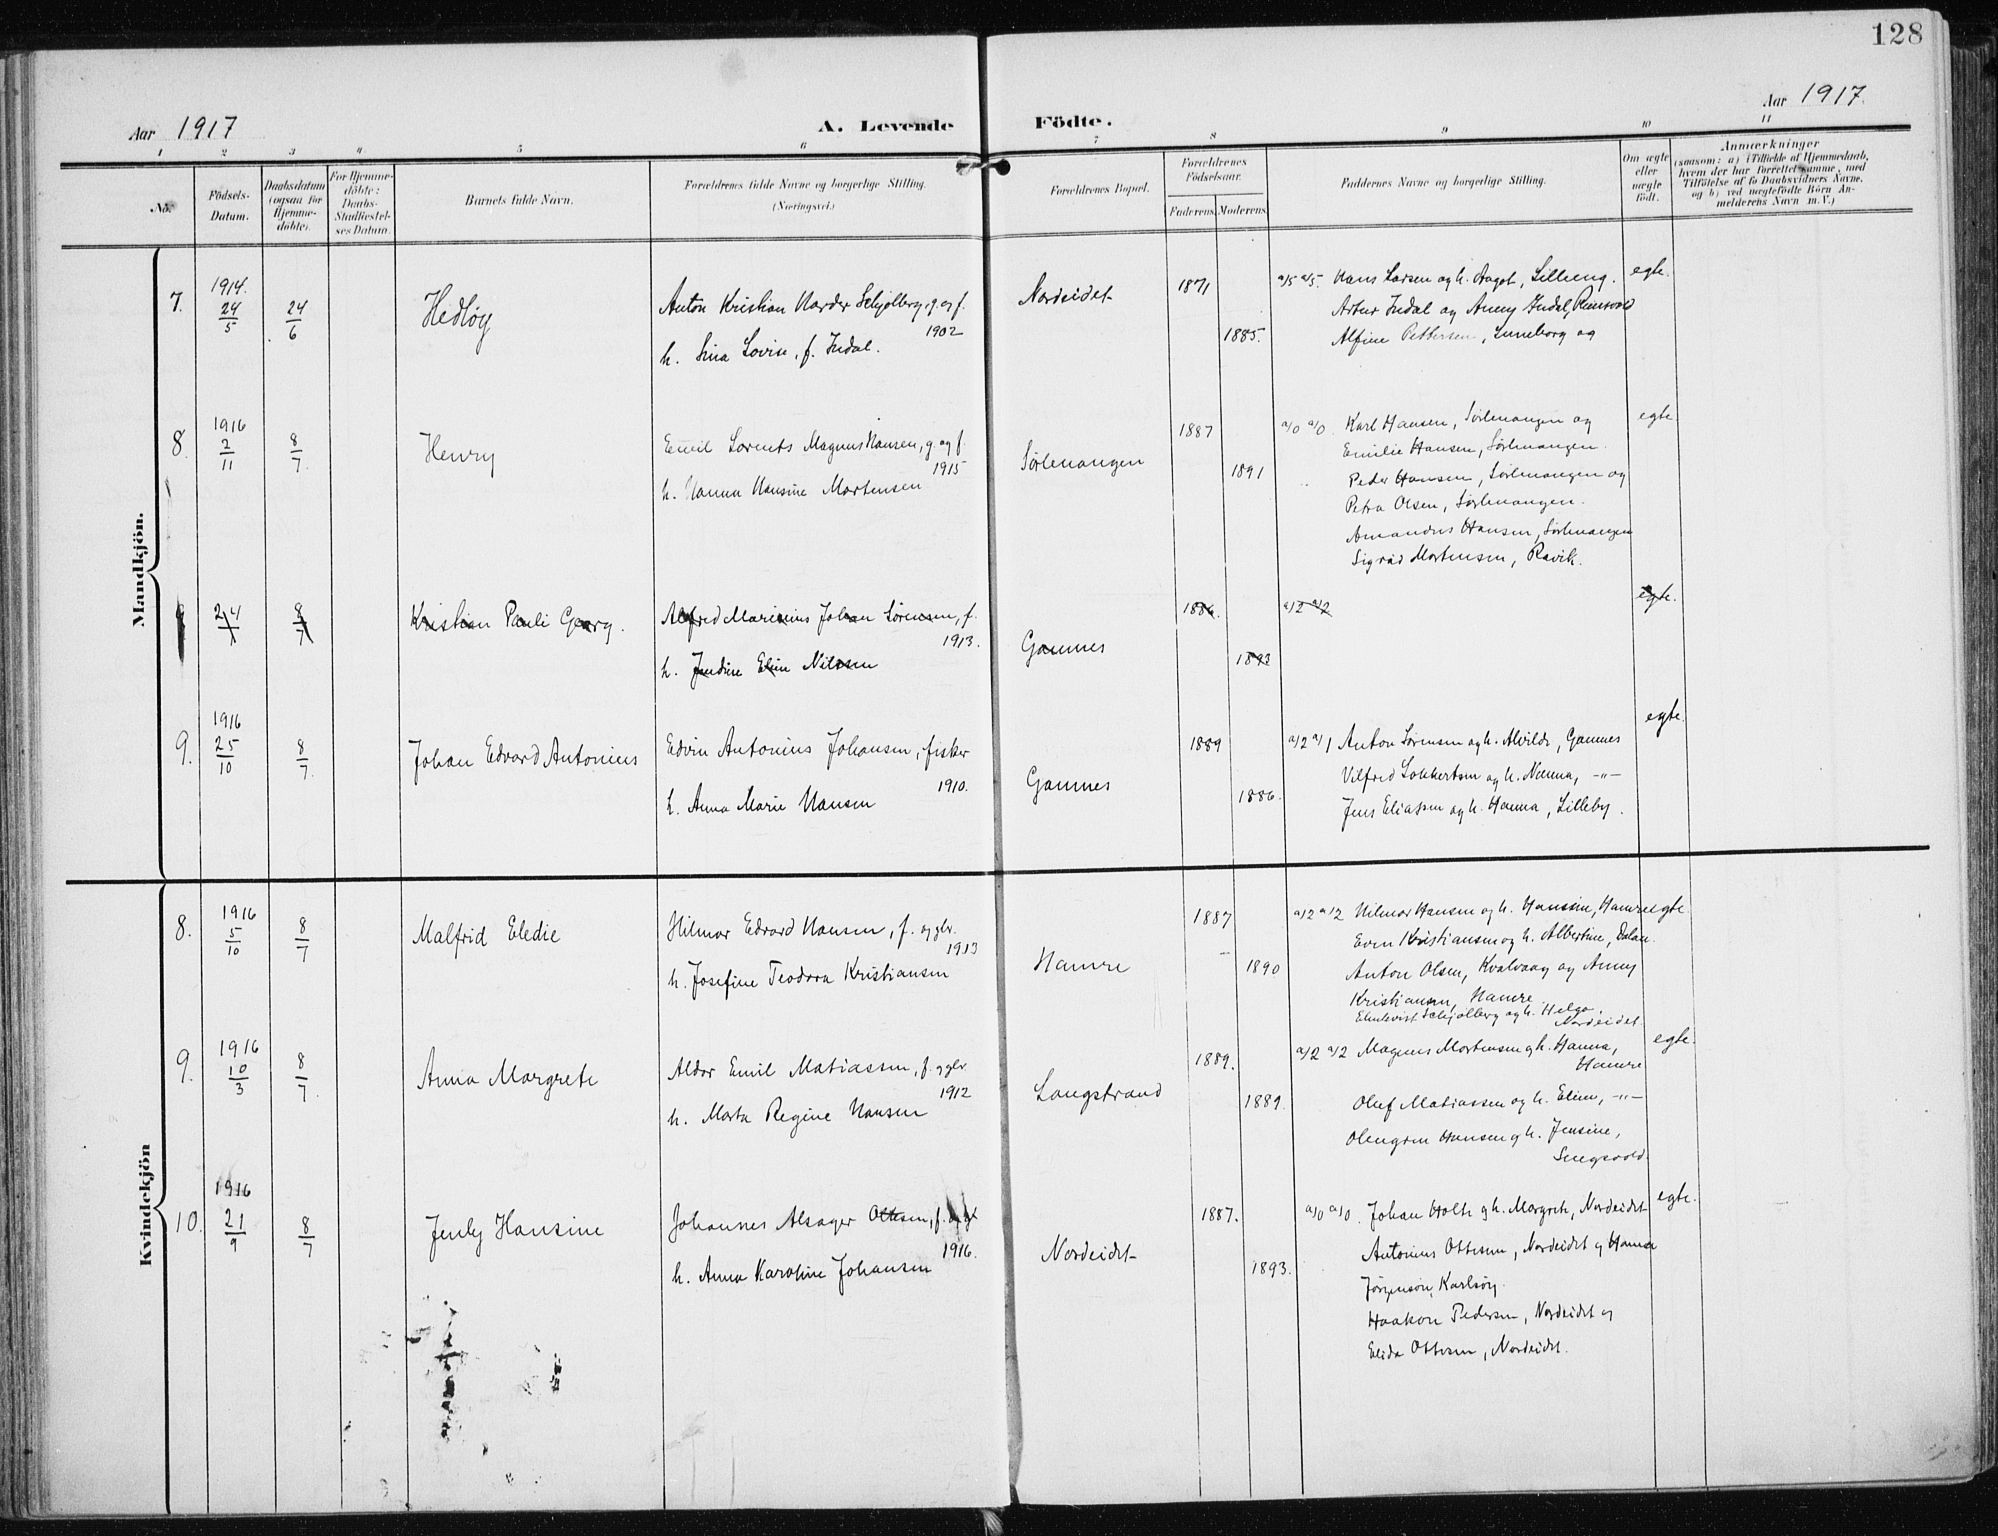 128
Aar 1917
A. Levende Födte.
Aar 1917
1 2 3 4 5 6 7 8 9 10 11
No.
Födsels-
Datum.
Daabsdatum
(ogsaa for
Hjemme-
döbte).
For Hjemme-
döbte:
Daabs-
Stadfæstel-
ses Datum.
Barnets fulde Navn.
Forældrenes fulde Navne og borgerlige Stilling.
(Næringsvei.)
Forældrenes Bopæl.
Forældrenes
Födselsaar.
Faderens Moderens
Faddernes Navne og borgerlige Stilling.
Om ægte
eller
uægte
födt.
Anmærkninger
(saasom: a) i Tilfælde af Hjemmedaab,
hvem der har forrettet samme, med
Tilföielse af to Daabsvidners Navne,
og b) ved uægtefödte Börn An-
melderens Navn m. V.)
Mandkjön.
7. 1914. 24/5 24/6 Hedløy
Anton Kristian Harder Schjølberg, g. og f.
1902
h. Lina Lovise, f. Indal.
Nordeidet
1871
1885.
a/5 a/5. Hans Larsen og h. Aagot, Lilleng.
Artur Indal og Anny Indal,
Alfine Pettersen, og
egte.
8. 1916 2/11 8/7. Henry
Emil Lorents Magnus Hansen, g. og f.
1915
h. Hanna Hansine Mortensen
Sørlenangen
1887
1891
a/0 a/0. Karl Hansen, Sørlenangen og
Emilie Hansen, Sørlenangen.
Peder Hansen, Sørlenangen og
Petra Olsen, Sørlenangen.
Amandus Hansen, Sørlenangen
Sigrid Mortensen, Ravik.
egte
9 24/1 8/7 Kristian Pauli Georg.
Alfred Marinius Johan Sørensen, f.
1913.
h. Jendine Elin Nilssen
Gamnes
1886.
1893
a/2 a/2
egte.
9. 1916 25/10 8/7. Johan Edvard Antonius
Edvin Antonius Johansen, fisker
1910.
h. Anna Marie Hansen
Gamnes
1889
1886.
a/2 a/1 Anton Sørensen og h. Alvilde, Gamnes
Vilfred Lokkertsen og h. Nanna, -"-
Jens Eliassen og h. Hanna, Lilleby.
egte.
Kvindekjön
8. 1916 5/10 8/7 Malfrid Eledie
Hilmar Edvard Hansen, f. og glv.
1913
h. Josefine Teodora Kristiansen
Hamre
1887
1890
a/2 a/2 Hilmar Hansen og h. Hansine, Hamre
Even Kristiansen og h. Albertine, Dalan.
Anton Olsen, Kvalvaag og Anny
Kristiansen, Hamre
Schjølberg og h. Helga,
Nordeidet.
egte.
9. 1916 10/3 8/7. Anna Margrete
Aldor Emil Matiassen, f. og glv.
1912
h. Marta Regine Hansen
Langstrand
1889.
1889.
a/2 a/2 Magnus Mortensen og h. Hanna,
Hamre
Oluf Matiassen og h. Eline, -"-
Hansen og h. Jensine,
egte.
10. 1916 21/9 8/7 Jenly Hansine
Johannes Alsager Ottesen, f.
1916.
h. Anna Karoline Johansen
Nordeidet
1887.
1893.
a/0 a/0. Johan Holte og h. Margrete, Nordeidet
Antonius Ottesen, Nordeidet og Hanna
Jørgensen, Karlsøy.
Haakon Pedersen, Nordeidet og
Elida Ottesen, Nordeidet.
egte.